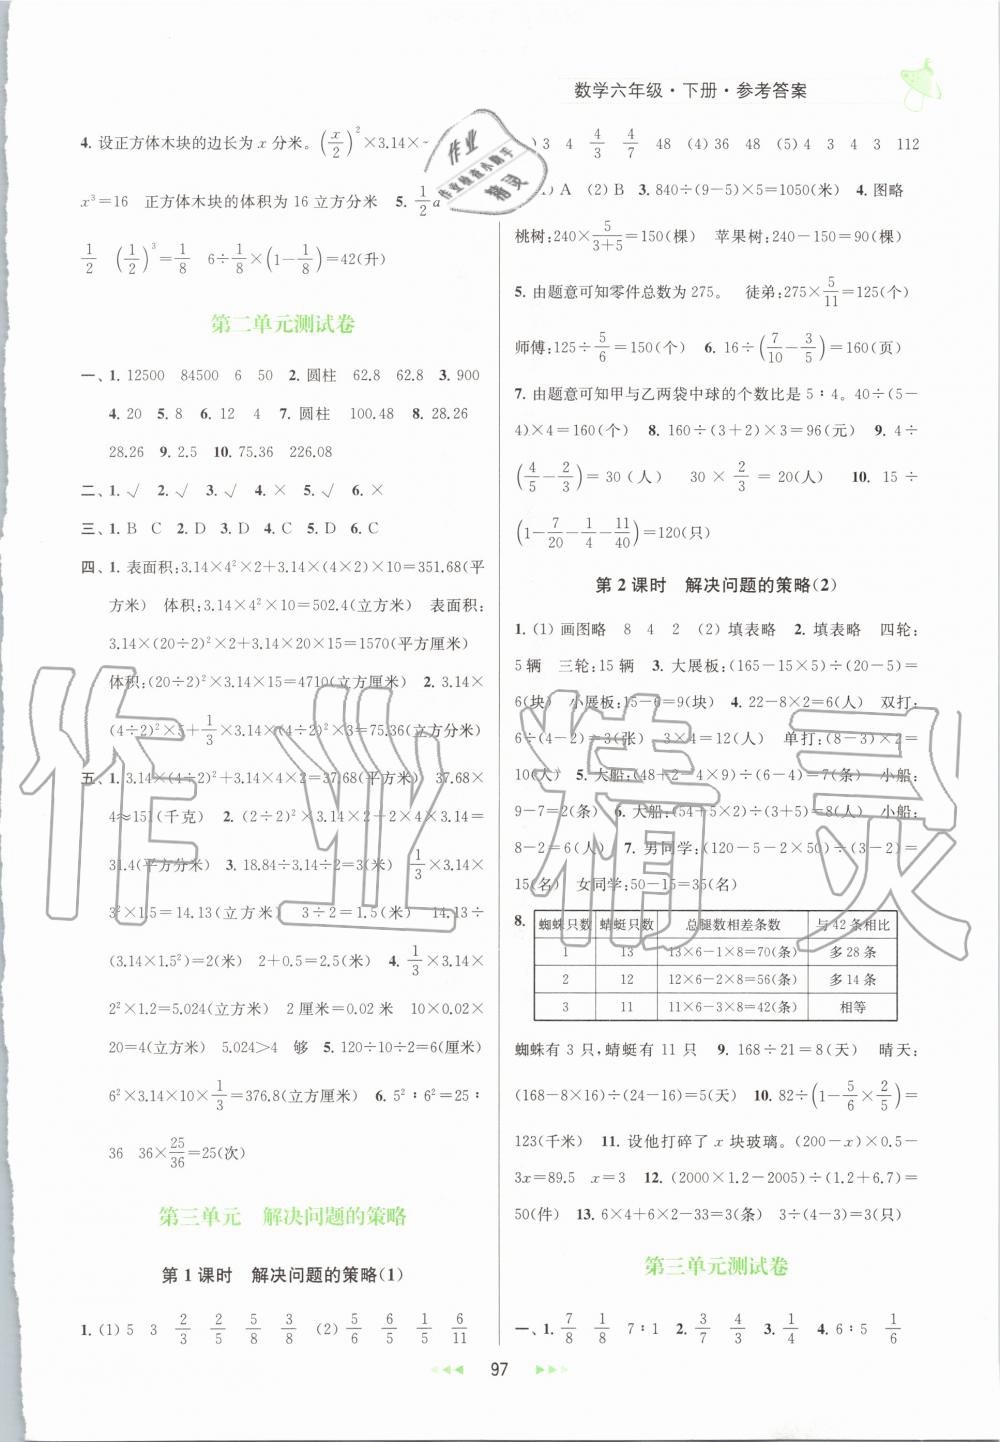 数学六年级·下册·参考答案
4. 设正方体木块的边长为 x 分米。(x/2)²×3.14×
x³=16 正方体木块的体积为 16 立方分米 5. 1/2 a
1/2 (1/2)³=1/8 6÷1/8×(1-1/8)=42(升)
第二单元测试卷
一、1. 12500 84500 6 50 2. 圆柱 62.8 62.8 3. 900
4. 20 5. 8 6. 12 4 7. 圆柱 100.48 8. 28.26
28.26 9. 2.5 10. 75.36 226.08
二、1. √ 2. √ 3. √ 4. × 5. √ 6. ×
三、1. B C 2. D 3. D 4. C 5. D 6. C
四、1. 表面积:3.14×4²×2+3.14×(4×2)×10=351.68(平
方米) 体积:3.14×4²×10=502.4(立方米) 表面积:
3.14×(20÷2)²×2+3.14×20×15=1570(平方厘米)
体积:(20÷2)²×3.14×15=4710(立方厘米) 2. 3.14×
(4÷2)²×5+1/3×3.14×(4÷2)²×3=75.36(立方分米)
五、1. 3.14×(4÷2)²×3=37.68(平方米) 37.68×
4≈151(千克) 2. (2÷2)²×3.14×2+2×4×3.14=
31.4(平方分米) 3. 18.84÷3.14÷2=3(米) 1/3×3.14×
3²×1.5=14.13(立方米) 3÷2=1.5(米) 14.13÷
(3.14×1.5²)=2(米) 2+0.5=2.5(米) 4. 1/3×3.14×
2²×1.2=5.024(立方米) 2厘米=0.02 米 10×0.02×
20=4(立方米) 5.024>4 够 5. 120÷10÷2=6(厘米)
6²×3.14×10×1/3=376.8(立方厘米) 6. 5²∶6²=25∶
36 36×25/36=25(次)
第三单元 解决问题的策略
第 1 课时 解决问题的策略(1)
1. (1) 5 3 2/3 2/5 5/8 3/8 (2) 5/6 6/5 1/5 6/11
3 4 4/3 4/7 48 (4) 36 48 (5) 4 3 4 3 112
A (2) B 3. 840÷(9-5)×5=1050(米) 4. 图略
桃树:240×5/(3+5)=150(棵) 苹果树:240-150=90(棵)
5. 由题意可知零件总数为 275。 徒弟:275×5/11=125(个)
师傅:125÷5/6=150(个) 6. 16÷(7/10-3/5)=160(页)
7. 由题意可知甲与乙两袋中球的个数比是 5∶4。40÷(5-
4)×4=160(个) 8. 160÷(3+2)×3=96(元) 9. 4÷
(4/5-2/3)=30(人) 30×2/3=20(人) 10. 15÷
(1-7/20-1/4-11/40)=120(只)
第 2 课时 解决问题的策略(2)
1. (1) 画图略 8 4 2 (2) 填表略 2. 填表略 四轮:
5 辆 三轮:15 辆 3. 大展板:(165-15×5)÷(20-5)=
6(块) 小展板:15-6=9(块) 4. 22-8×2=6(人) 双打:
6÷(4-2)=3(张) 3×4=12(人) 单打:(8-3)×2=
10(人) 5. 大船:(48+2-4×9)÷(6-4)=7(条) 小船:
9-7=2(条) 6. 大船:(54+5×2)÷(3+5)=8(人) 小船:
8-2=6(人) 7. 男同学:(120-5-2×50)÷(3-2)=
15(名) 女同学:50-15=35(名)
8. 蜘蛛只数 蜻蜓只数 总腿数相差条数 与 42 条相比
1 13 13×6-1×8=70(条) 多 28 条
2 12 12×6-2×8=56(条) 多 14 条
3 11 11×6-3×8=42(条) 相等
蜘蛛有 3 只,蜻蜓有 11 只 9. 168÷21=8(天) 晴天:
(168-8×16)÷(24-16)=5(天) 10. 82÷(1-5/6×2/5)=
123(千米) 11. 设他打碎了 x 块玻璃。(200-x)×0.5-
3x=89.5 x=3 12. (2000×1.2-2005)÷(1.2+6.7)=
50(件) 13. 6×4+6×2-33=3(条) 3÷(4-3)=3(只)
第三单元测试卷
一、1. 7/8 1/8 7∶1 2. 3/7 4/3 3. 1/4 4. 6∶5 1/6
97
作业
作业检查小助手
精灵
作业精灵